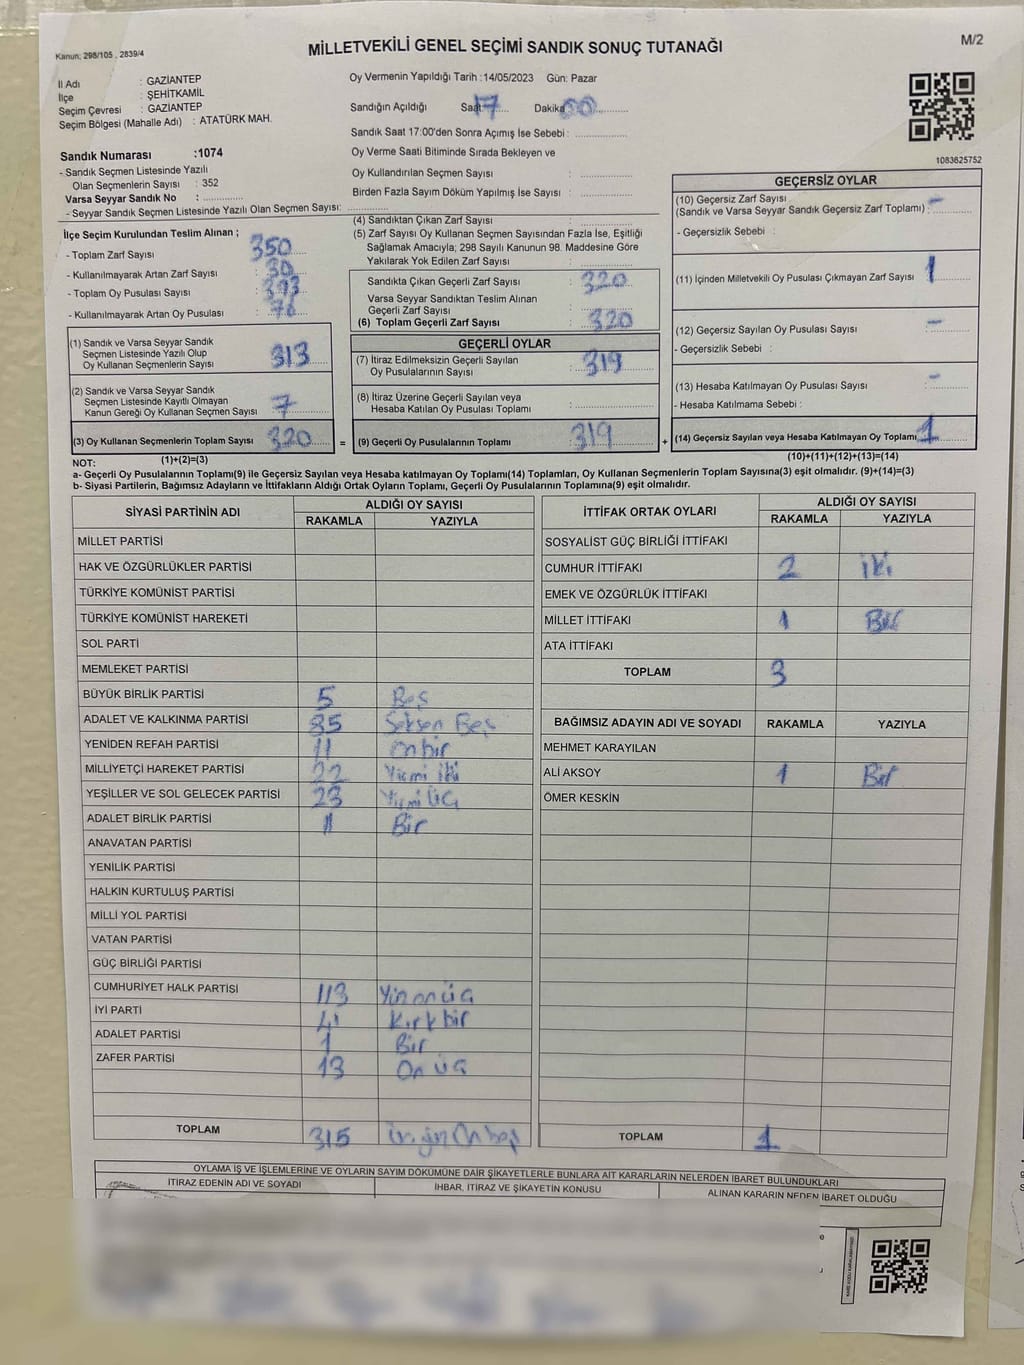 Kanun: 298/105 , 2839/4
M/2
MİLLETVEKİLİ GENEL SEÇİMİ SANDIK SONUÇ TUTANAĞI
İl Adı : GAZİANTEP
İlçe : ŞEHİTKAMİL
Seçim Çevresi : GAZİANTEP
Seçim Bölgesi (Mahalle Adı) : ATATÜRK MAH.
Oy Vermenin Yapıldığı Tarih :14/05/2023 Gün: Pazar
Sandığın Açıldığı Saat 17 Dakika 00
Sandık Saat 17:00'den Sonra Açımış İse Sebebi :
Oy Verme Saati Bitiminde Sırada Bekleyen ve
Oy Kullandırılan Seçmen Sayısı :
Birden Fazla Sayım Döküm Yapılmış İse Sayısı :
1083625752
Sandık Numarası :1074
- Sandık Seçmen Listesinde Yazılı
Olan Seçmenlerin Sayısı : 352
Varsa Seyyar Sandık No :
- Seyyar Sandık Seçmen Listesinde Yazılı Olan Seçmen Sayısı:
İlçe Seçim Kurulundan Teslim Alınan ;
- Toplam Zarf Sayısı : 350
- Kullanılmayarak Artan Zarf Sayısı : 30
- Toplam Oy Pusulası Sayısı : 393
- Kullanılmayarak Artan Oy Pusulası : 76
(1) Sandık ve Varsa Seyyar Sandık
Seçmen Listesinde Yazılı Olup
Oy Kullanan Seçmenlerin Sayısı : 313
(2) Sandık ve Varsa Seyyar Sandık
Seçmen Listesinde Kayıtlı Olmayan
Kanun Gereği Oy Kullanan Seçmen Sayısı : 7
(3) Oy Kullanan Seçmenlerin Toplam Sayısı 320
(1)+(2)=(3)
(4) Sandıktan Çıkan Zarf Sayısı :
(5) Zarf Sayısı Oy Kullanan Seçmen Sayısından Fazla İse, Eşitliği
Sağlamak Amacıyla; 298 Sayılı Kanunun 98. Maddesine Göre
Yakılarak Yok Edilen Zarf Sayısı :
Sandıkta Çıkan Geçerli Zarf Sayısı : 320
Varsa Seyyar Sandıktan Teslim Alınan
Geçerli Zarf Sayısı :
(6) Toplam Geçerli Zarf Sayısı : 320
GEÇERLİ OYLAR
(7) İtiraz Edilmeksizin Geçerli Sayılan
Oy Pusulalarının Sayısı : 319
(8) İtiraz Üzerine Geçerli Sayılan veya
Hesaba Katılan Oy Pusulası Toplamı :
= (9) Geçerli Oy Pusulalarının Toplamı : 319 +
GEÇERSİZ OYLAR
(10) Geçersiz Zarf Sayısı : -
(Sandık ve Varsa Seyyar Sandık Geçersiz Zarf Toplamı)
- Geçersizlik Sebebi :
(11) İçinden Milletvekili Oy Pusulası Çıkmayan Zarf Sayısı : 1
(12) Geçersiz Sayılan Oy Pusulası Sayısı : -
- Geçersizlik Sebebi :
(13) Hesaba Katılmayan Oy Pusulası Sayısı : -
- Hesaba Katılmama Sebebi :
(14) Geçersiz Sayılan veya Hesaba Katılmayan Oy Toplamı 1
(10)+(11)+(12)+(13)=(14)
NOT:
a- Geçerli Oy Pusulalarının Toplamı(9) ile Geçersiz Sayılan veya Hesaba katılmayan Oy Toplamı(14) Toplamları, Oy Kullanan Seçmenlerin Toplam Sayısına(3) eşit olmalıdır. (9)+(14)=(3)
b- Siyasi Partilerin, Bağımsız Adayların ve İttifakların Aldığı Ortak Oyların Toplamı, Geçerli Oy Pusulalarının Toplamına(9) eşit olmalıdır.
SİYASİ PARTİNİN ADI ALDIĞI OY SAYISI
RAKAMLA YAZIYLA
MİLLET PARTİSİ
HAK VE ÖZGÜRLÜKLER PARTİSİ
TÜRKİYE KOMÜNİST PARTİSİ
TÜRKİYE KOMÜNİST HAREKETİ
SOL PARTİ
MEMLEKET PARTİSİ
BÜYÜK BİRLİK PARTİSİ 5 Beş
ADALET VE KALKINMA PARTİSİ 85 Seksen Beş
YENİDEN REFAH PARTİSİ 11 On bir
MİLLİYETÇİ HAREKET PARTİSİ 22 Yirmi iki
YEŞİLLER VE SOL GELECEK PARTİSİ 23 Yirmi Üç
ADALET BİRLİK PARTİSİ 1 Bir
ANAVATAN PARTİSİ
YENİLİK PARTİSİ
HALKIN KURTULUŞ PARTİSİ
MİLLİ YOL PARTİSİ
VATAN PARTİSİ
GÜÇ BİRLİĞİ PARTİSİ
CUMHURİYET HALK PARTİSİ 113 Yüz on üç
İYİ PARTİ 41 Kırk bir
ADALET PARTİSİ 1 Bir
ZAFER PARTİSİ 13 On üç
TOPLAM 315 Üç yüz On beş
İTTİFAK ORTAK OYLARI ALDIĞI OY SAYISI
RAKAMLA YAZIYLA
SOSYALİST GÜÇ BİRLİĞİ İTTİFAKI
CUMHUR İTTİFAKI 2 iki
EMEK VE ÖZGÜRLÜK İTTİFAKI
MİLLET İTTİFAKI 1 Bir
ATA İTTİFAKI
TOPLAM 3
BAĞIMSIZ ADAYIN ADI VE SOYADI RAKAMLA YAZIYLA
MEHMET KARAYILAN
ALİ AKSOY 1 Bir
ÖMER KESKİN
TOPLAM 1
OYLAMA İŞ VE İŞLEMLERİNE VE OYLARIN SAYIM DÖKÜMÜNE DAİR ŞİKAYETLERLE BUNLARA AİT KARARLARIN NELERDEN İBARET BULUNDUKLARI
İTİRAZ EDENİN ADI VE SOYADI İHBAR, İTİRAZ VE ŞİKAYETİN KONUSU ALINAN KARARIN NEDEN İBARET OLDUĞU